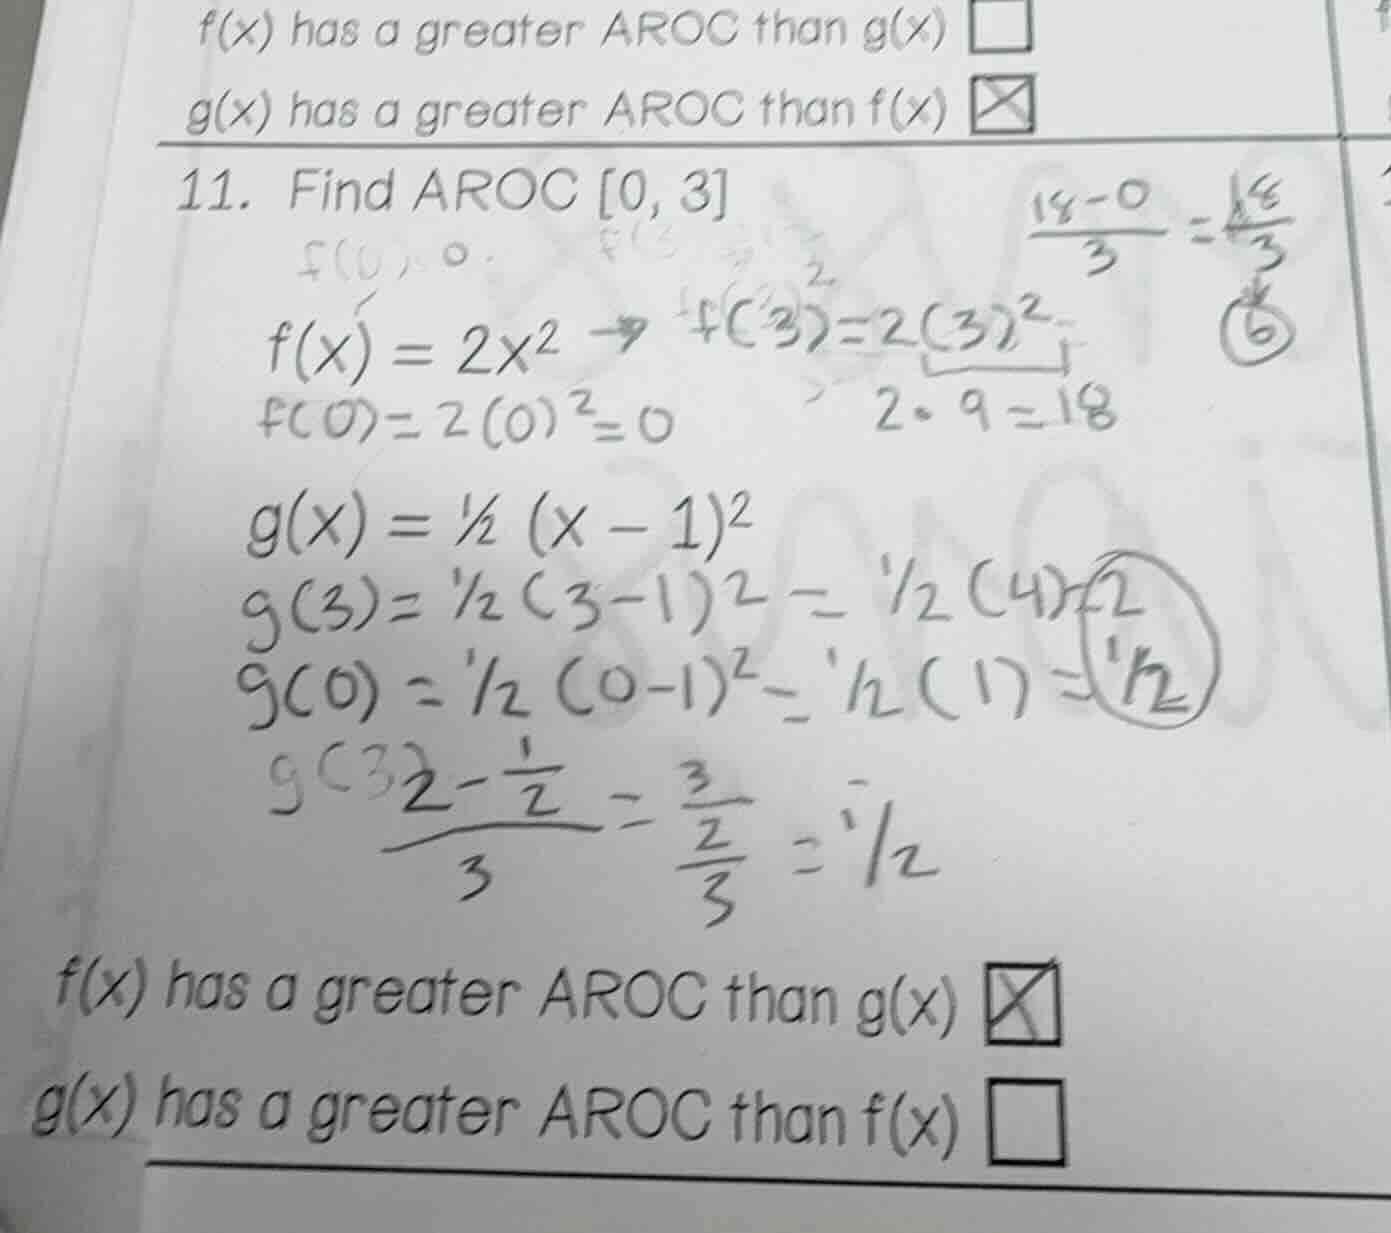 f(x) has a greater AROC than g(x)
g(x) has a greater AROC than f(x)
11. Find AROC [0, 3]
18-0/3 = 18/3
6
f(0) 0.
f(3
f(x) = 2x² → f(3)² = 2(3)²
f(0) = 2(0)² = 0
2 • 9 = 18
g(x) = ½ (x − 1)²
g(3) = 1/2 (3-1)2 = 1/2 (4) = 2
g(0) = 1/2 (0-1)² = 1/2 (1) = 1/2
g(3) 2 - 1/2 / 3 = 3/2/3 = 1/2
f(x) has a greater AROC than g(x)
g(x) has a greater AROC than f(x)